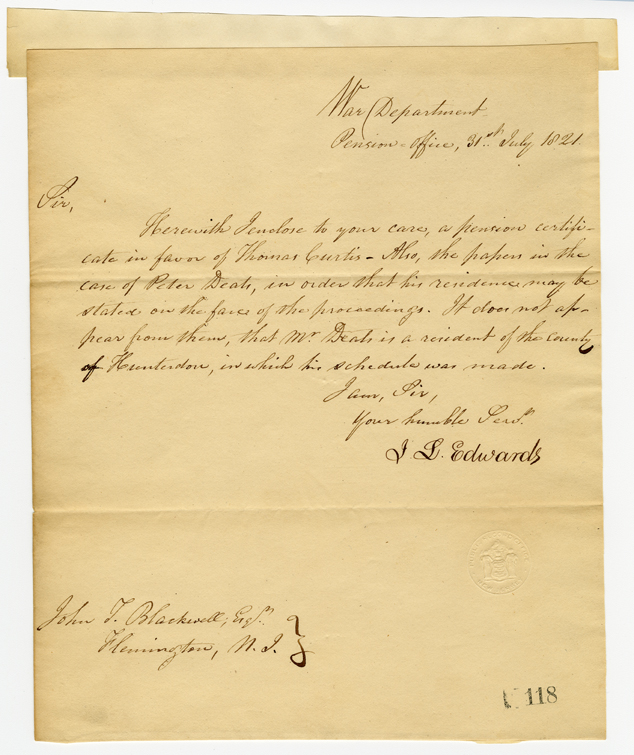 War Department
Pension-Office, 31st July 1821
Sir,
Herewith I enclose to your care, a pension certifi-
cate in favor of Thomas Curtis - Also, the papers in the
case of Peter Deats, in order that his residence may be
stated on the face of the proceedings. It does not ap-
pear from them, that Mr Deats is a resident of the county
of Hunterdon, in which his schedule was made.
I am, Sir,
Your humble Servt.
J L. Edwards
John T. Blackwell, Esqr.
Flemington, N. J.
118